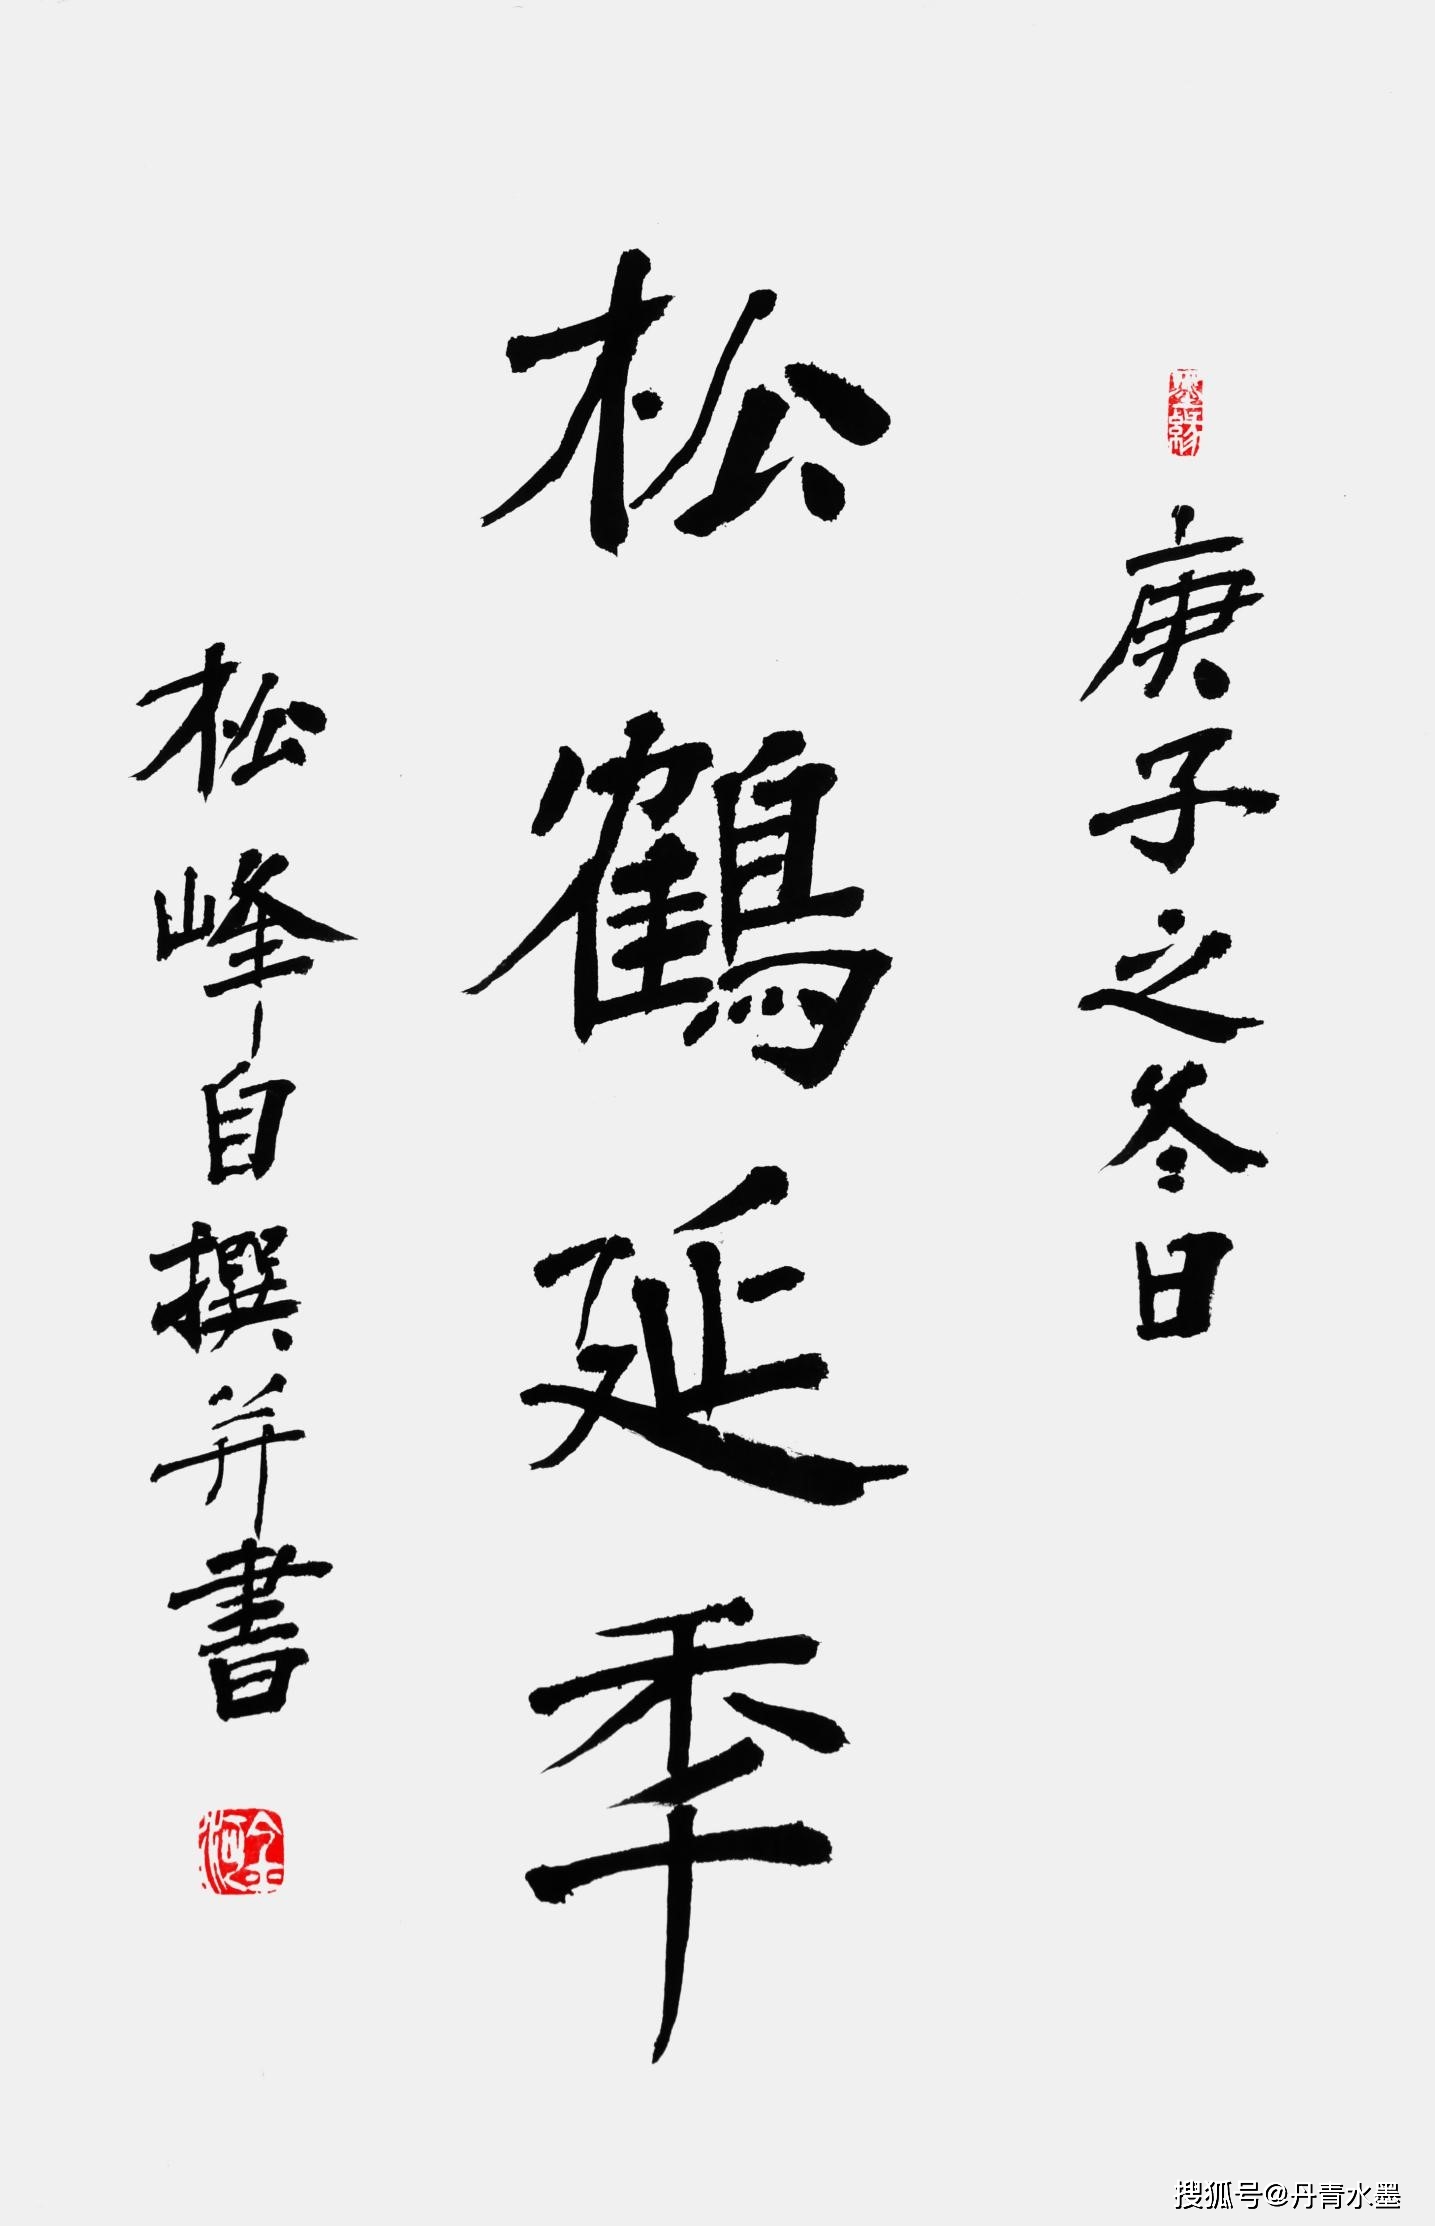 庚子之冬日
松鶴延秊
松峰自撰并書
搜狐号@丹青水墨